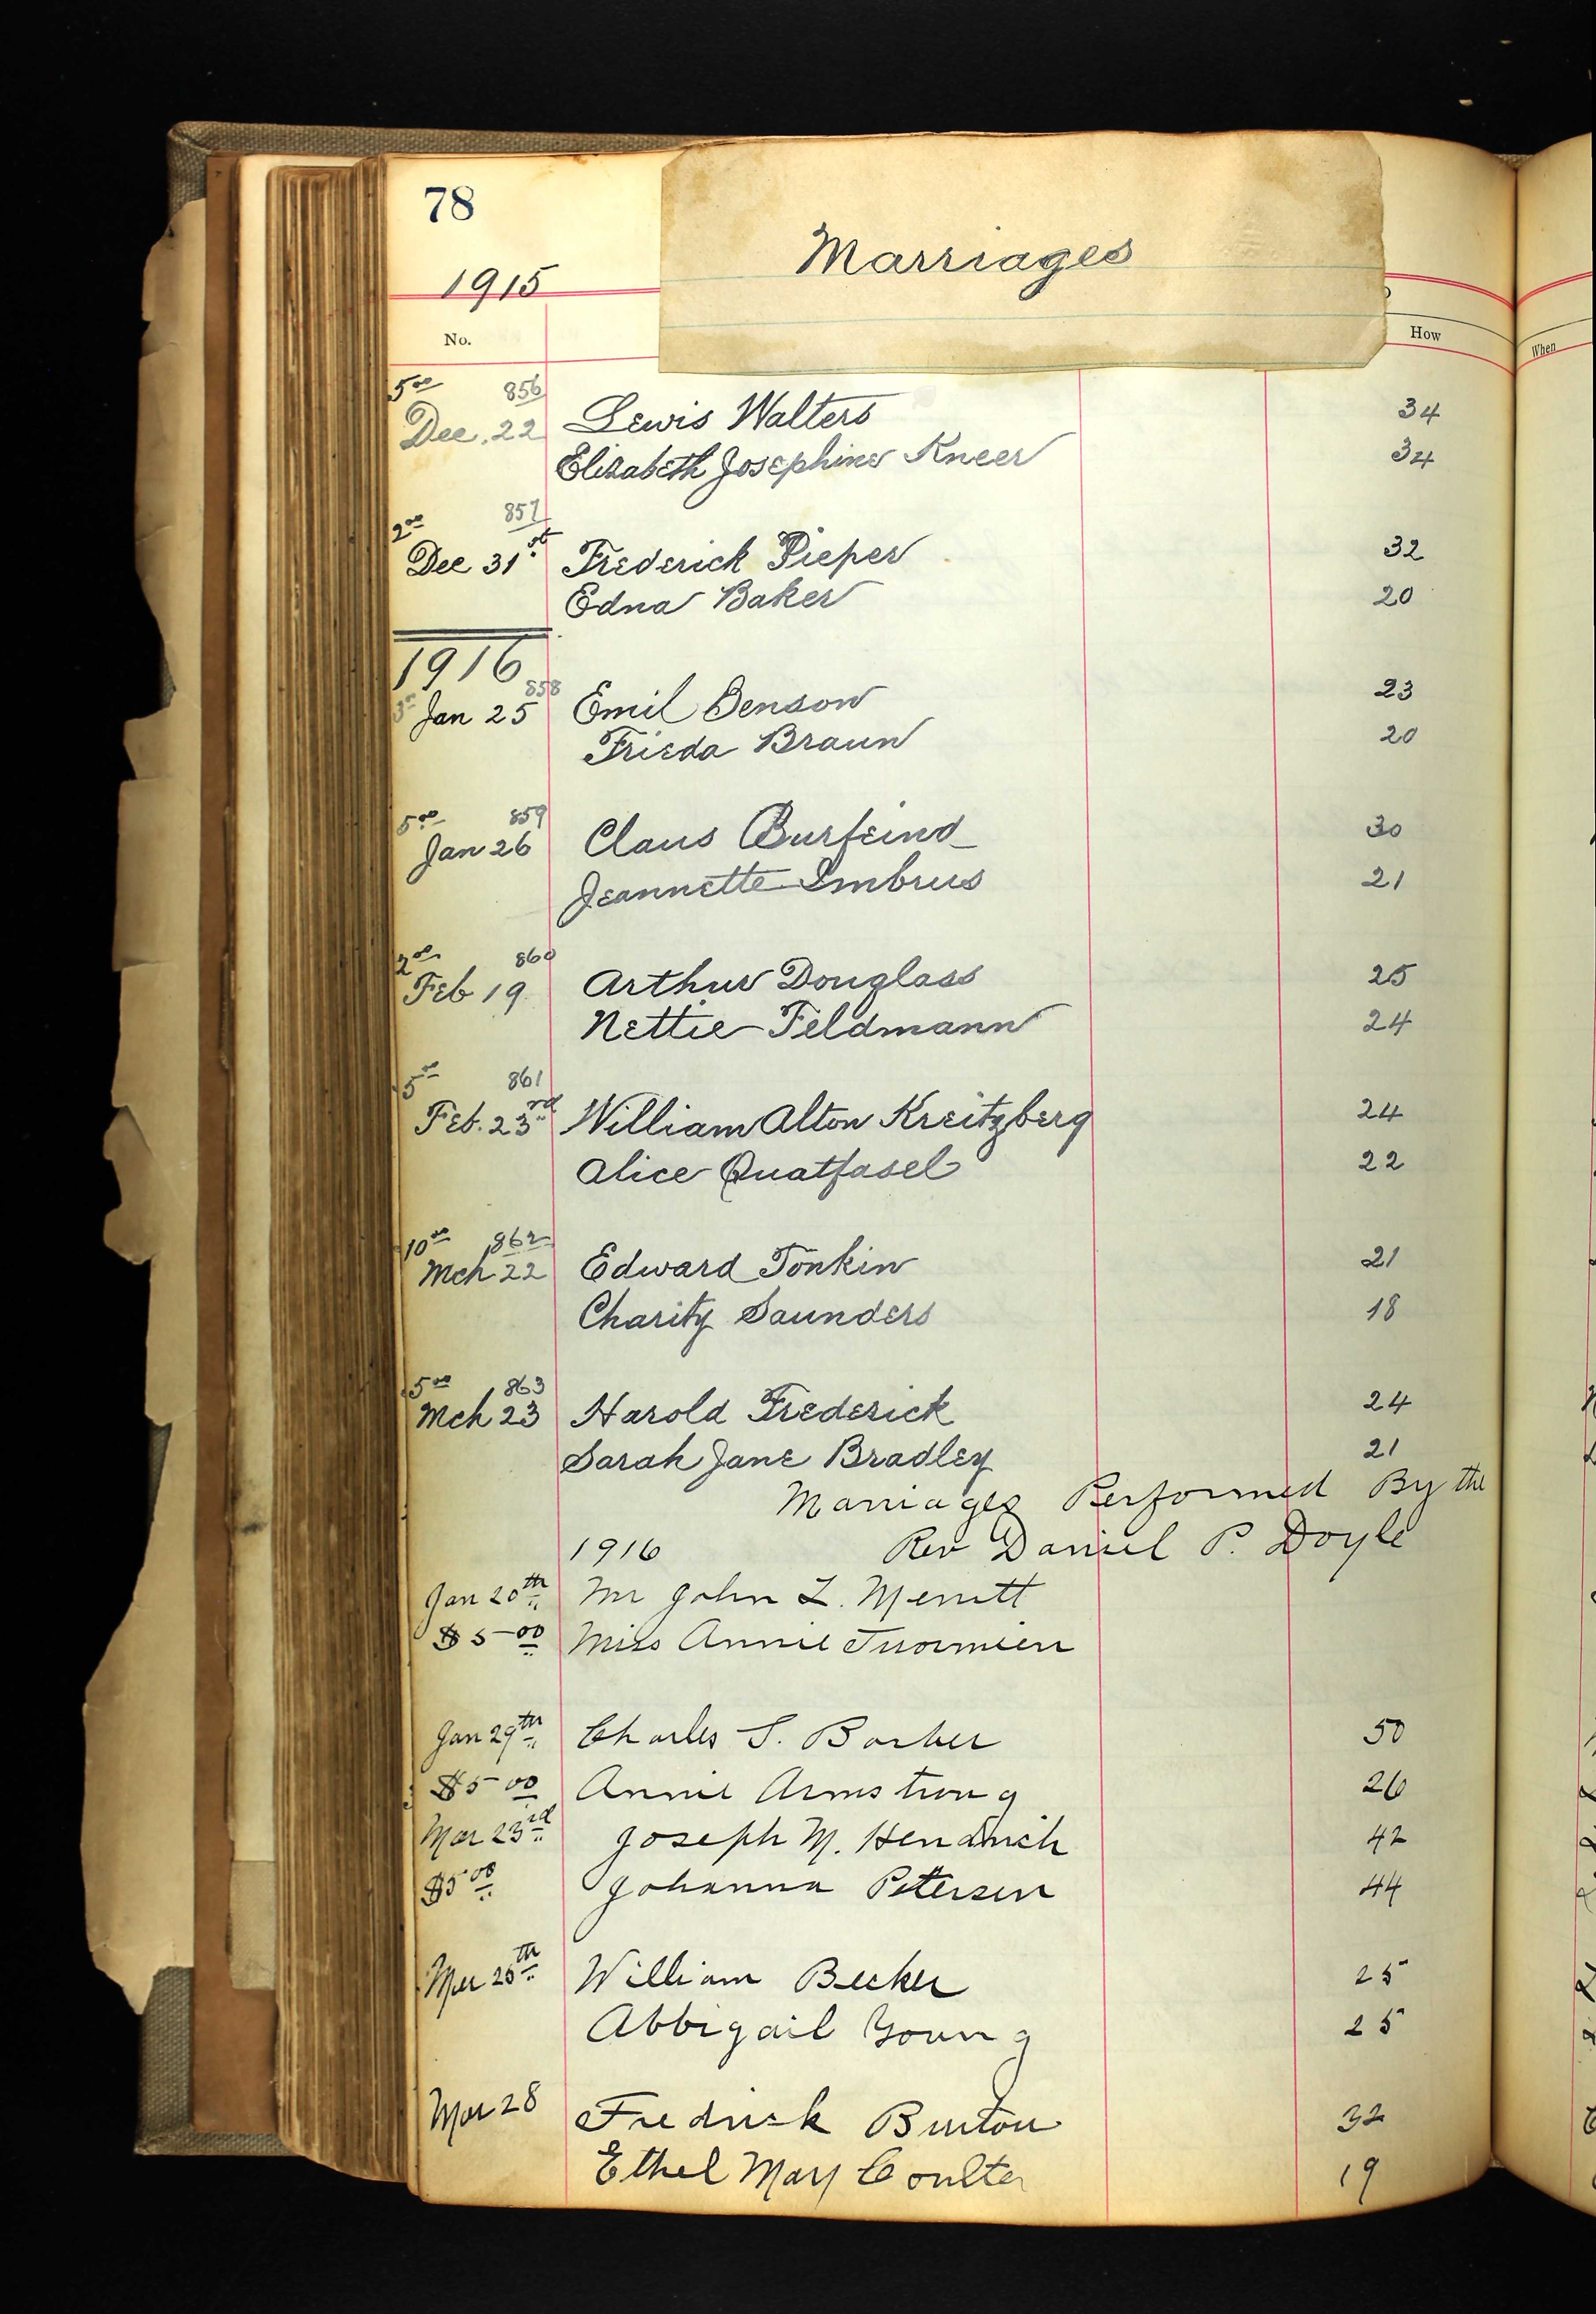 78
Marriages
1915
No.
How
When
500 856 34
Dec. 22 Lewis Walters
Elizabeth Josephine Kneer 34
200 857
Dec 31st Frederick Pieper 32
Edna Baker 20
1916
858
Jan 25 Emil Benson 23
Frieda Braun 20
500 859
Jan 26 Claus Burfeind 30
Jeannette Imbrus 21
200 860
Feb 19 Arthur Douglass 25
Nettie Feldmann 24
500 861
Feb. 23rd William Alton Kreitzberg 24
Alice Quatfasel 22
1000 862
Mch 22 Edward Tonkin 21
Charity Saunders 18
500 863
Mch 23 Harold Frederick 24
Sarah Jane Bradley 21
Marriages Performed By the
1916 Rev Daniel P. Doyle
Jan 20th Mr John L. Merritt
$5 00 Miss Annie
Jan 29th Charles S. Barber 50
$5 00 Annie Armstrong 26
Mar 23rd Joseph M. Hendrich 42
$5 00 Johanna Petersen 44
Mar 26th William Becker 25
Abbigail Young 25
Mar 28 Fredrick Burton 32
Ethel Mary Coulter 19